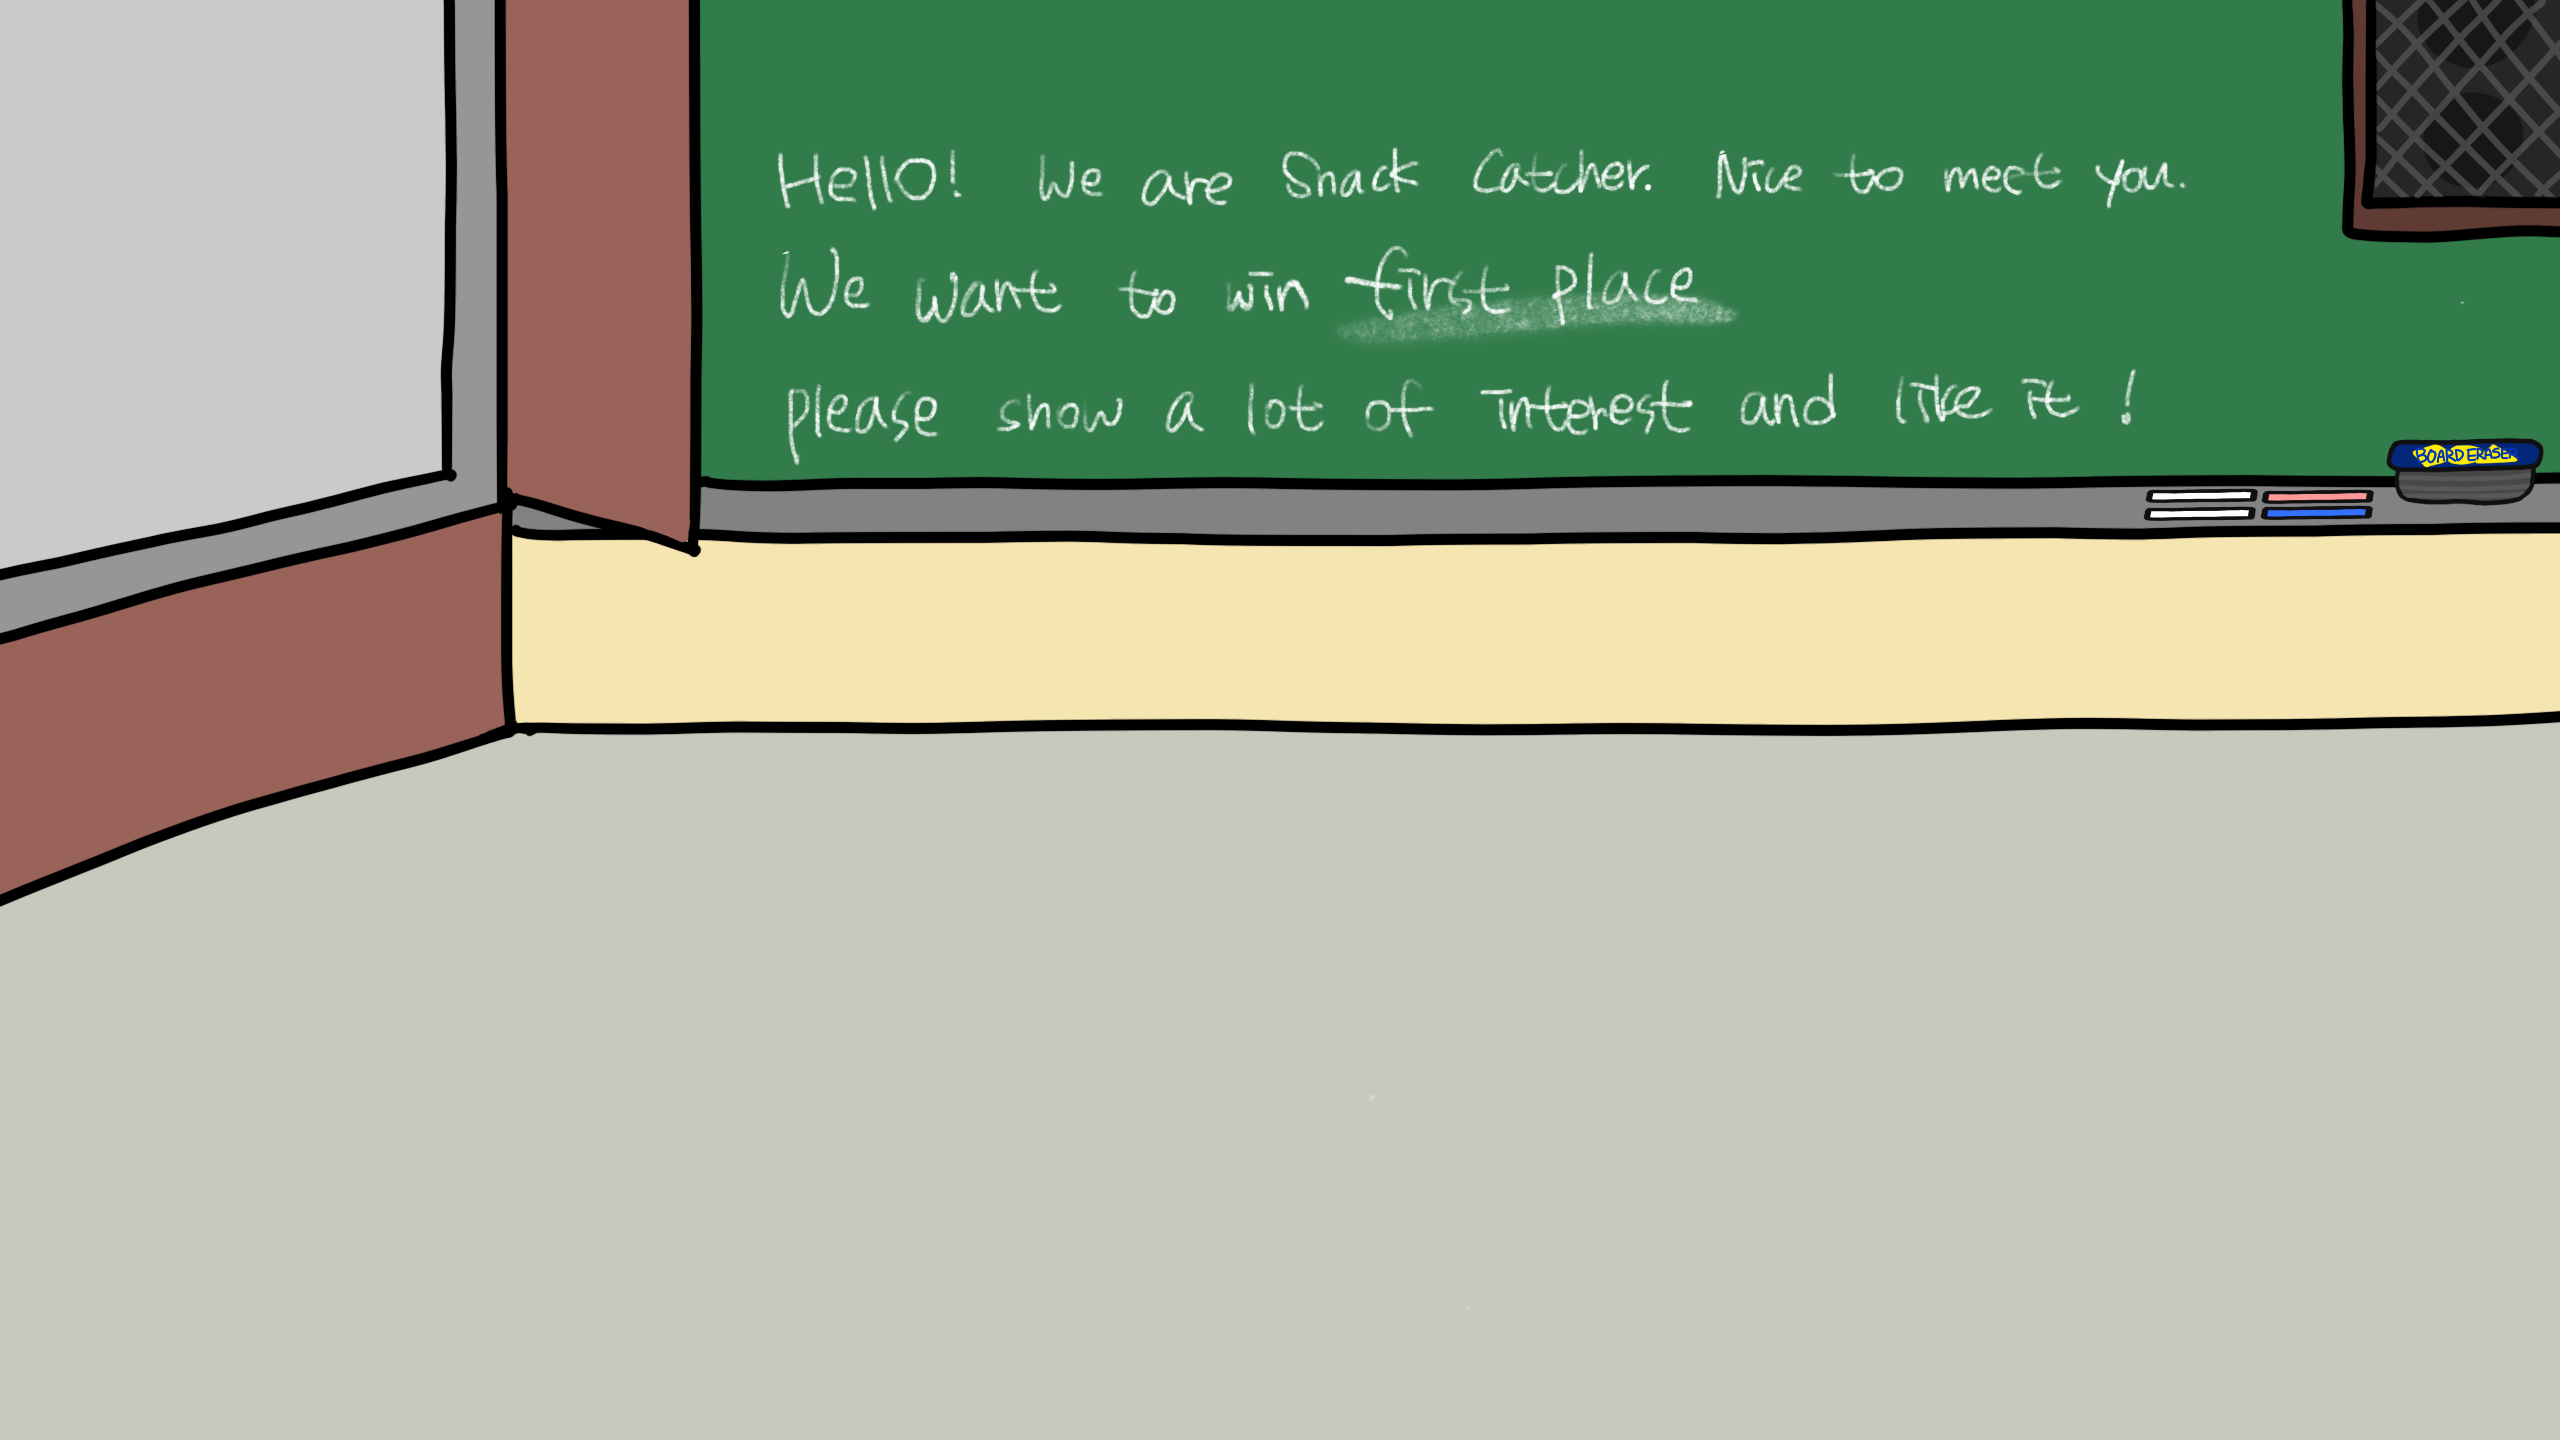 Hello! We are Snack Catcher. Nice to meet you.
We want to win first place
please show a lot of interest and like it!
BOARD ERASER